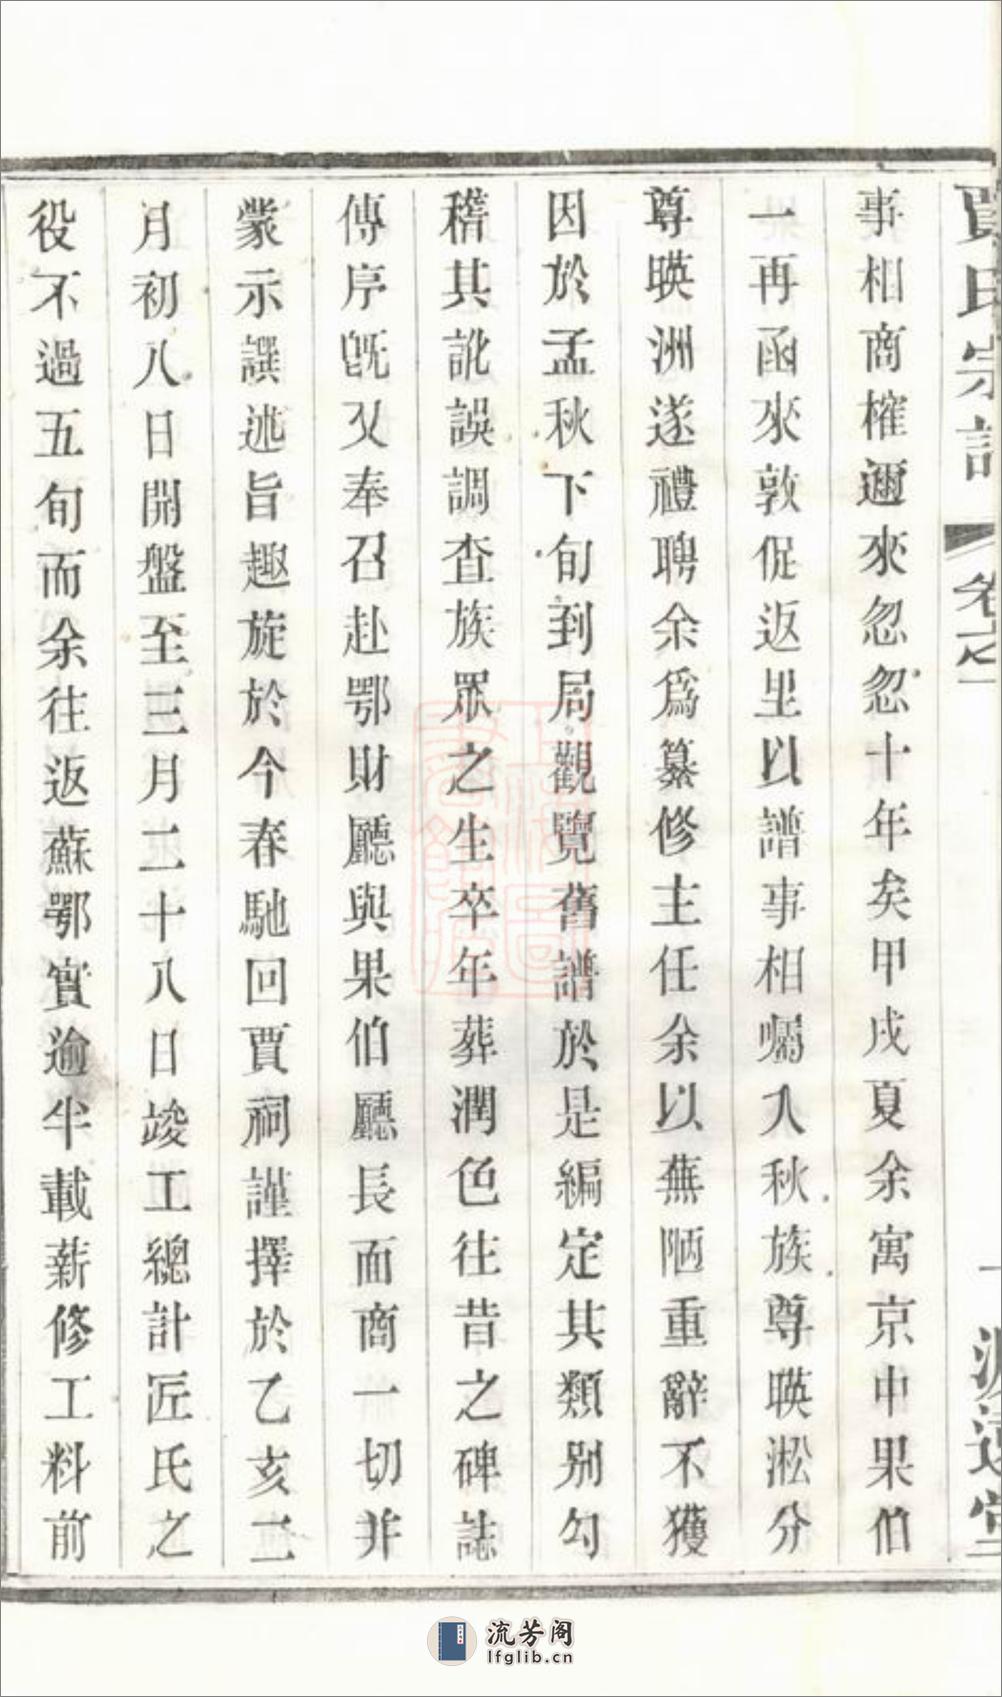 賈氏宗譜
卷之一
一
源遠堂
事相商榷邇來忽忽十年矣甲戌夏余寓京中果伯
一再函來敦促返里以譜事相囑入秋族尊暎淞分
尊暎洲遂禮聘余爲纂修主任余以蕪陋重辭不獲
因於孟秋下旬到局觀覽舊譜於是編定其類别勾
稽其訛誤調查族眾之生卒年葬潤色往昔之碑誌
傳序旣又奉召赴鄂財廳與果伯廳長面商一切并
蒙示譔述旨趣旋於今春馳回賈祠謹擇於乙亥二
月初八日開盤至三月二十八日竣工總計匠氏之
役不過五旬而余往返蘇鄂實逾半載薪修工料前
流芳阁
lfglib.cn